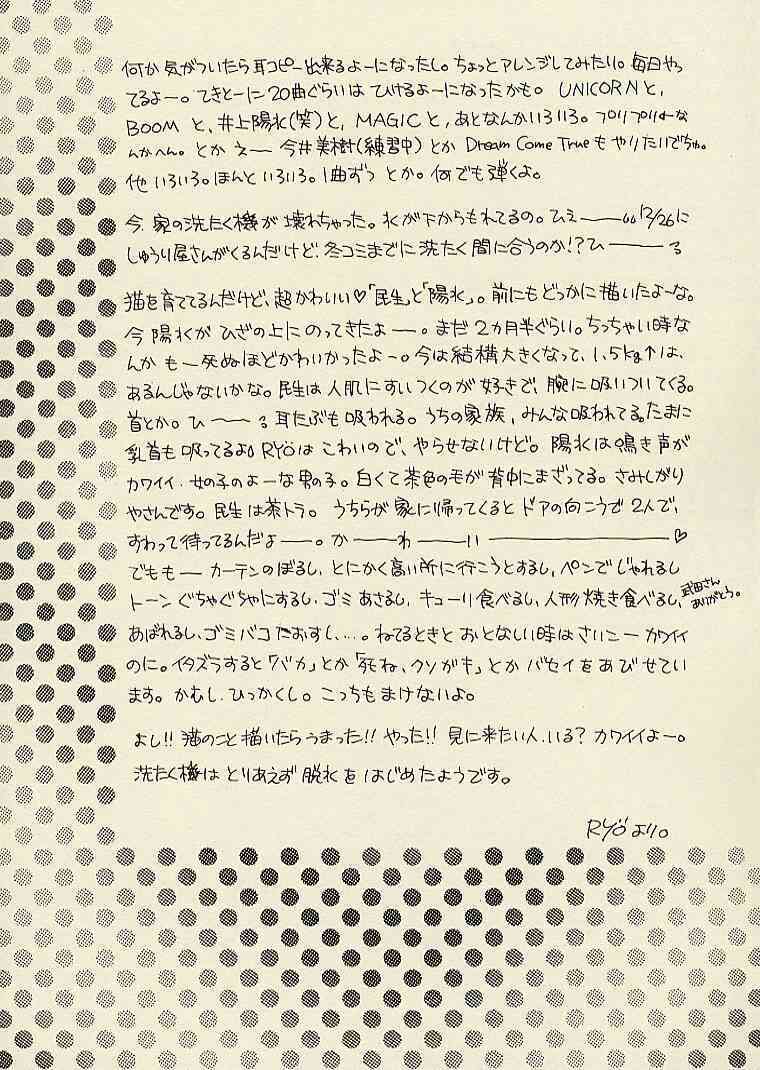 何か気がついたら耳コピー出来るよーになったし。ちょっとアレンジしてみたり。毎日やっ
てるよー。てきとーに20曲ぐらいは ひけるよーになったかも。UNICORNと,
BOOM と、井上陽水(笑)と, MAGICと, あとなんかいろいろ。プリプリだーな
んかへん。とか えー 今井美樹(練習中) とか Dream Come Trueも やりたいでちゅ。
他 いろいろ。ほんと いろいろ。1曲ずつ とか。何でも弾くよ。
今、家の洗たく機が 壊れちゃった。水が下からもれてるの。ひぇ——
12/26に
しゅうり屋さんがくるんだけど、冬コミまでに洗たく間に合うのか!?ひ——る
猫を育ててるんだけど、超かわいい♡「民生」と「陽水」。前にもどっかに描いたよーな。
今 陽水が ひざの上に のってきたよー。まだ 2カ月半ぐらい。ちっちゃい時な
んか もー死ぬほどかわいかったよー。今は結構大きくなって、1.5kg↑は、
あるんじゃないかな。民生は人肌にすいつくのが好きで、腕に吸いついてくる。
首とか。ひ〜〜る 耳たぶも吸われる。うちの家族、みんな吸われてる。たまに
乳首も吸ってるよ。RYÖは こわいので、やらせないけど。陽水は鳴き声が
カワイイ、女の子のよーな男の子。白くて茶色の毛が背中にまざってる。さみしがり
やさんです。民生は茶トラ。うちらが 家に帰ってくると ドアの向こうで 2人で、
すわって待ってるんだよー。か——わ——い——♡
でもも— カーテンのぼるし、とにかく高い所に行こうとするし、ペンで じゃれるし
トーン ぐちゃぐちゃにするし、ゴミ あさるし、キューリ食べるし、人形焼き食べるし、
武田さん
ありがとう。
あばれるし、ゴミバコ たおすし、…。ねてるときと おとなしい時は さいこー カワイイ
のに。イタズラすると「バカ」とか「死ね、クソガキ」とか バセイを あびせてい
ます。かむし、ひっかくし。こっちも まけないよ。
よし!! 猫のこと 描いたら うまった!! やった!! 見に来たい人、いる? カワイイよー。
洗たく機は とりあえず 脱水を はじめたようです。
RYÖ より。